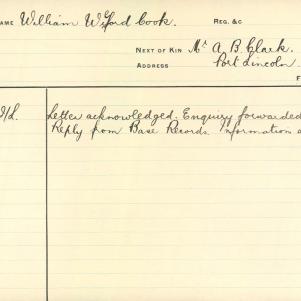 NAME William Wyford Cook. REG. &C
NEXT OF KIN Mr A. B. Clark.
ADDRESS Port Lincoln
F
/L. Letter acknowledged. Enquiry forwarded
Reply from Base Records. Information a